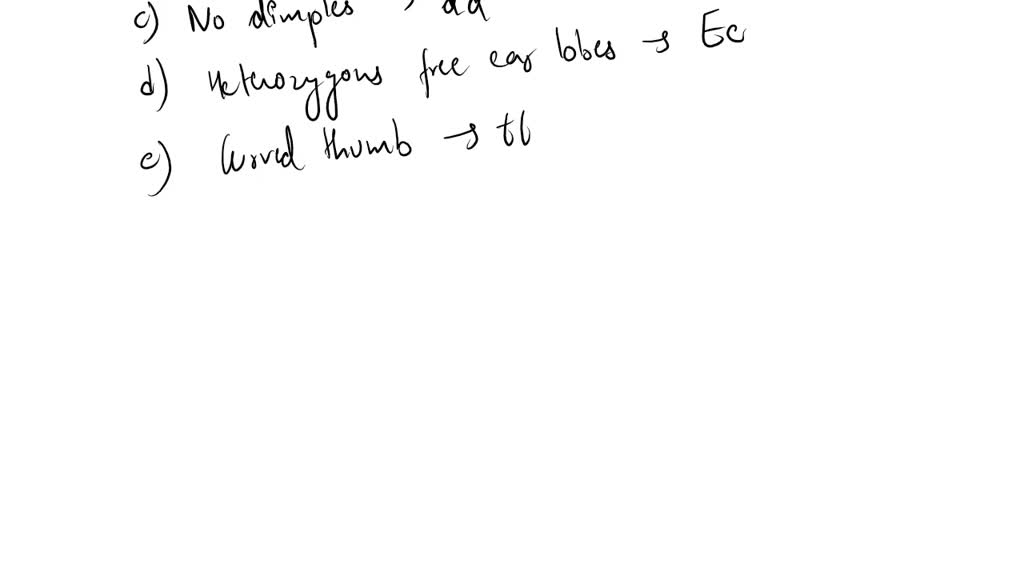 c) No dimples → dd
d) Heterozygous free ear lobes → Ee
e) Curved thumb → tt